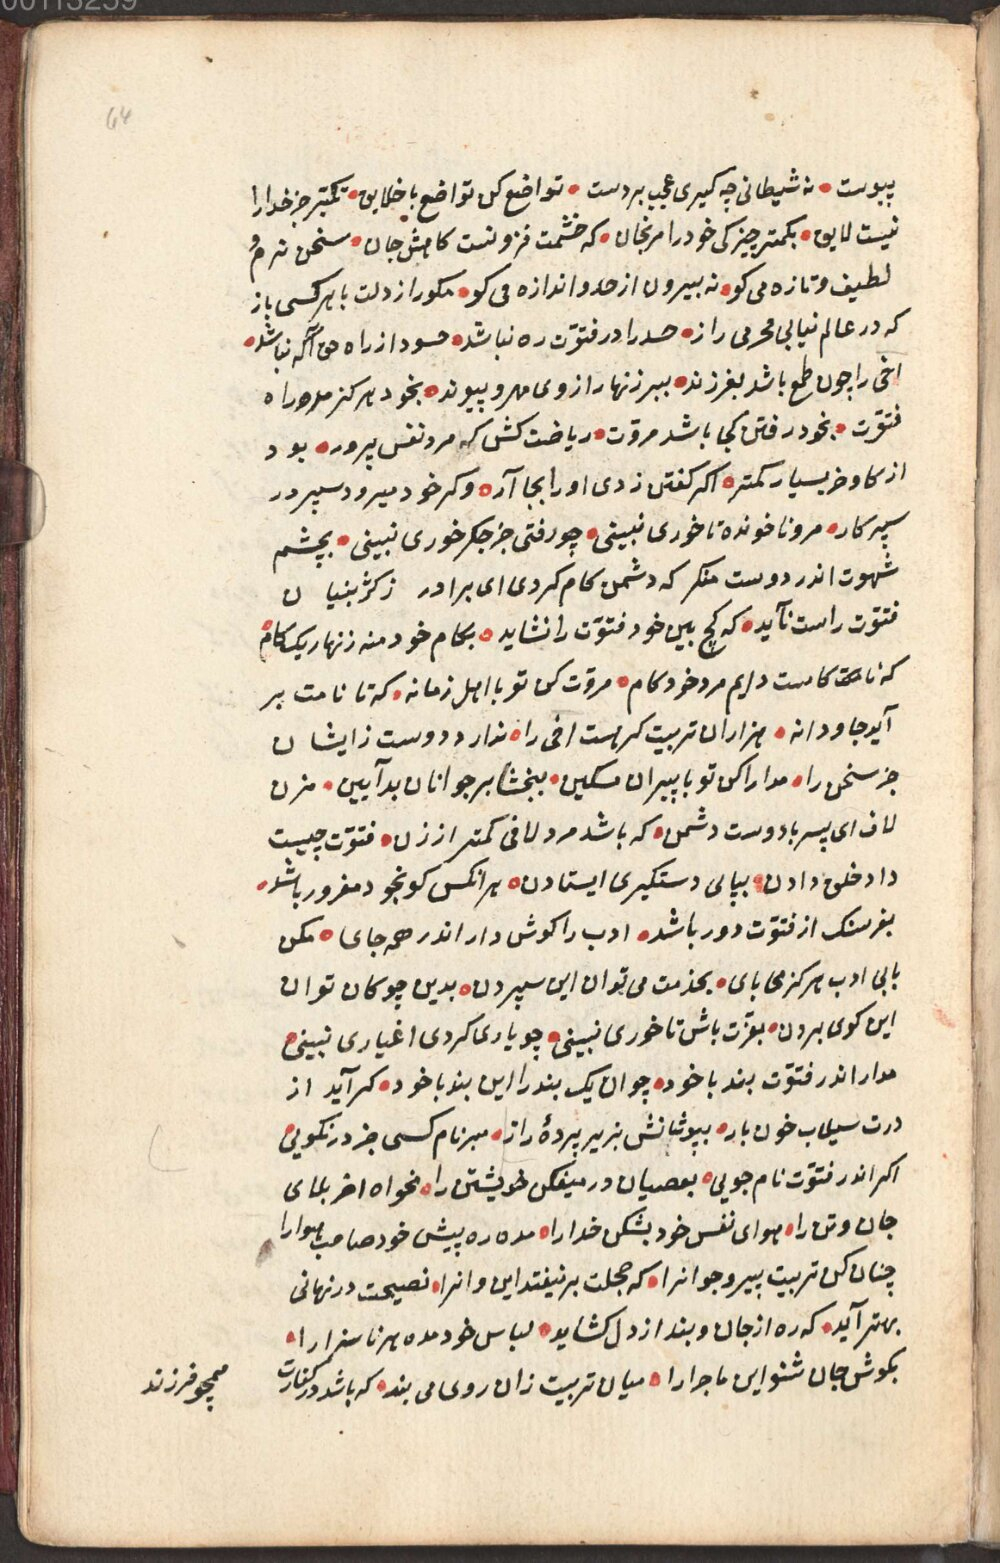 00113239
64
پیوست • نه شیطانی چه کیری عجب بر دست • تواضع کن تواضع با خلایق • تکبر جز خدا را
نیست لایق • بکمتر چیزکی خود را مرنجان • که خشمت فزونست کاهش جان • سخن نرم و
لطیف و تازه می کو • نه بیرون از حد و اندازه می کو • مکو راز دلت با هر کسی باز
که در عالم نیابی محرمی راز • حسد را در فتوّت ره نباشد • حسود از راه حق آگه نباشد •
اخی را چون طمع باشد بفرزند • ببر زنهار از وی مهر و پیوند • بخود هرکز مرو راه
فتوّت • بخود رفتن کجا باشد مروّت • ریاضت کش که مرد نفس پرور • بود
از کاو و خر بسیار کمتر • اکر کفتن زدی او را بجا آر • وکر خود میرود سپر در
سپر کار • مرو ناخونده تا خوری نبینی • چو رفتی جز جکر خوری نبینی • بچشم
شهوت اندر دوست منکر که دشمن کام کردی ای برادر ز کژ بنیان
فتوّت راست نآید • که کج بین خود فتوّت را نشاید • بکام خود منه زنهار یک کام •
که نامت کاست دایم مرد خود کام • مروّت کن تو با اهل زمانه • که تا نامت بر
آید جاودانه • هزاران تربیت کر هست اخی را • ندارد دوست زایشان
جز سخن را • مدارا کن تو با پیران مسکین • ببخشا بر جوانان بد آیین • مزن
لاف ای پسر با دوست دشمن • که باشد مرد لافی کمتر از زن • فتوّت چیست
داد خلق دادن • بپای دستکیری ایستادن • هر انکس کو بخود مغرور باشد •
بفرسنک از فتوّت دور باشد • ادب را کوش دار اندر همه جای • مکن
با بی ادب هرکز محابای • بخدمت می توان این سپردن • بدین چوکان توان
این کوی بردن • بعزّت باش تا خوری نبینی • چو یاری کردی اغیاری نبینی •
مدار اندر فتوّت بند با خود • چو آن یک بند را این بند با خود • کر آید از
درت سیلاب خون بار • بپوشانش بزیر پردهٔ راز • مبر نام کسی جز در نکویی •
اکر اندر فتوّت نام جویی • بعصیان در میفکن خویشتن را • مخواه اخر بلای
جان و تن را • هوای نفس خود بشکن خدا را • مده ره پیش خود صاحب هوا را
چنان کن تربیت پیر و جوانرا • که خجلت بر نیفتد این و انرا • نصیحت در نهانی
بهتر آید • که ره از جان و بند از دل کشاید • لباس خود مده هر ناسزا را •
بکوش جان شنو این ماجرا را • میان تربیت زان روی می بند • که باشد در کنارت
همچو فرزند